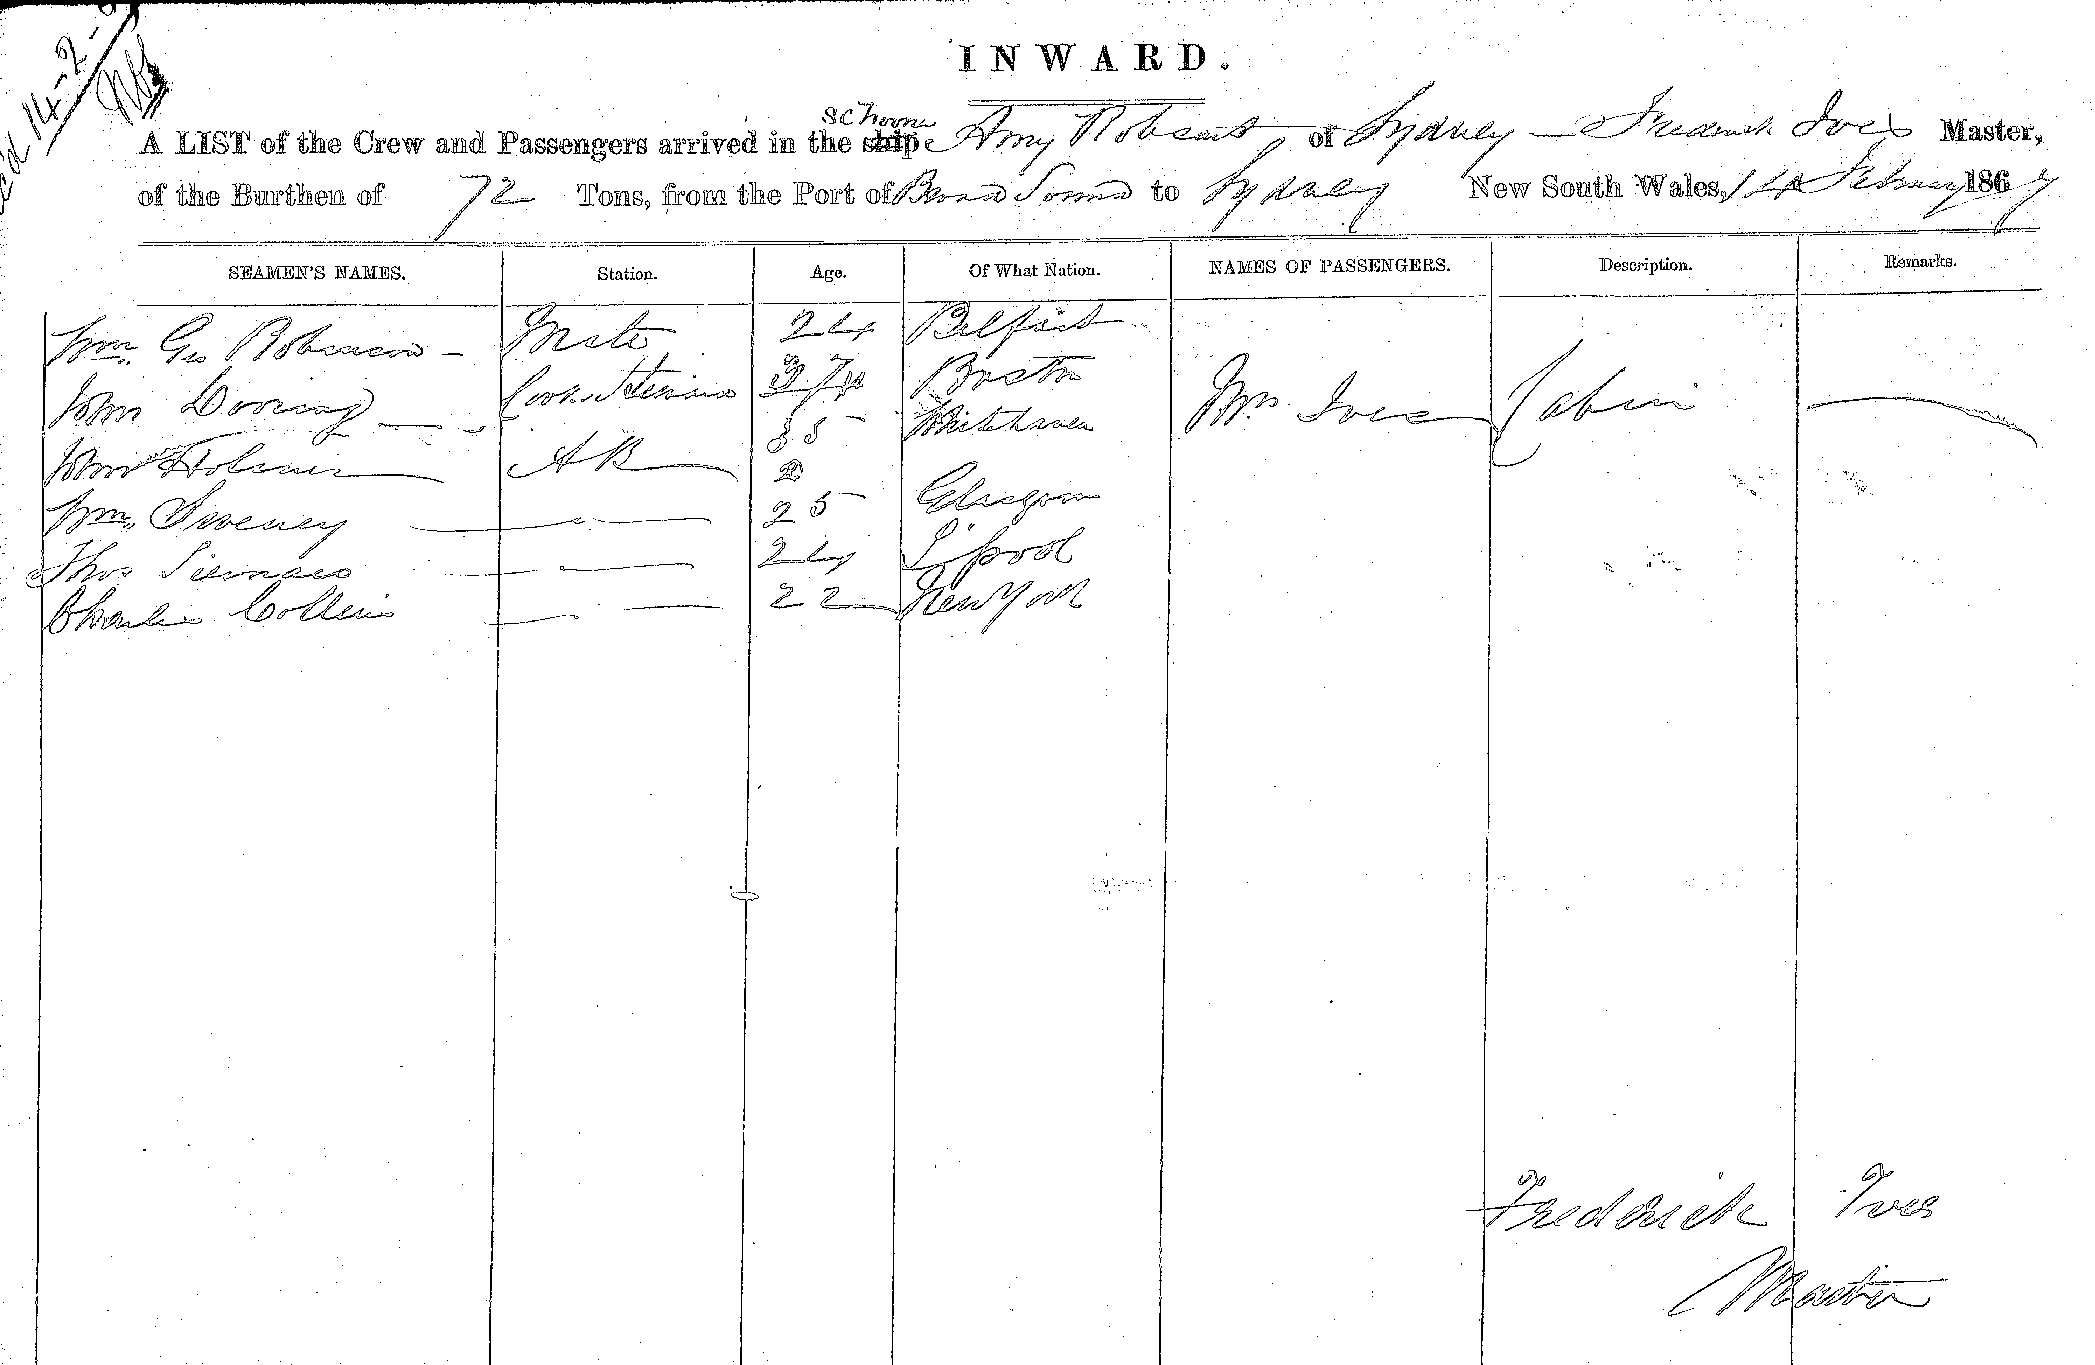 14-2-
INWARD.
A LIST of the Crew and Passengers arrived in the ship schooner Amy Robsart of Sydney — Frederick Ives Master,
of the Burthen of 72 Tons, from the Port of Sound to Sydney New South Wales, 14 February 1867
SEAMEN'S NAMES. Station. Age. Of What Nation. NAMES OF PASSENGERS. Description. Remarks.
Wm. Geo Robinson — Mate 24 Belfast
John — Cook & Steward 37 Boston Mrs Ives Cabin —
John Holmes AB 35 Whitehaven
Wm. Sweeney — — 25 Glasgow
Thos — — 24 L'pool
Charles Collins — — 22 New York
Frederick Ives
Master